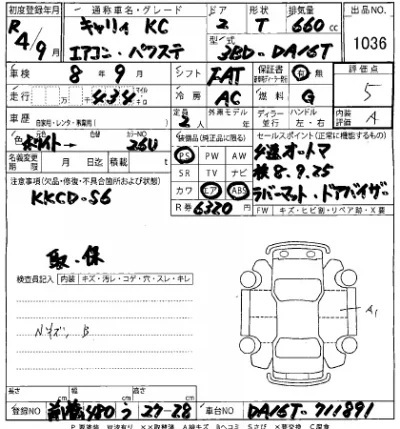 初度登録年月 通称車名・グレード ドア 形状 排気量 出品NO
R4/9月 キャリイ KC 2 T 660cc 1036
エアコン・パワステ 型式 3BD-DA16T
車検 8年9月 シフト FAT 保証書 有 無 評価点
5
走行 434 冷房 AC 燃料 G
車歴 自家用・レンタ・事業用( ) 定員 2人 外車モデル ディーラー 並行 ハンドル 左・右 内装 A
色 ホワイト→ カラーNO 26U 装備品(純正品に限る) セールスポイント(正常に機能するもの)
名義変更期限 月 日迄 積載 t PS PW AW 4速オートマ
注意事項(欠品・修復・不具合箇所及び状態) SR TV ナビ 検8.9.25
KKCD-S6 カワ エア ABS ラバーマット・ドアバイザー
R券 6320円 FW キズ・ヒビ割・リペア跡・X要
取・保
検査員記入 内装 キズ・汚レ・コゲ・穴・スレ・キレ
Nキズ、B
A1
長さ 幅 高さ
登録NO 480 う 27-28 車台NO DA16T-711891